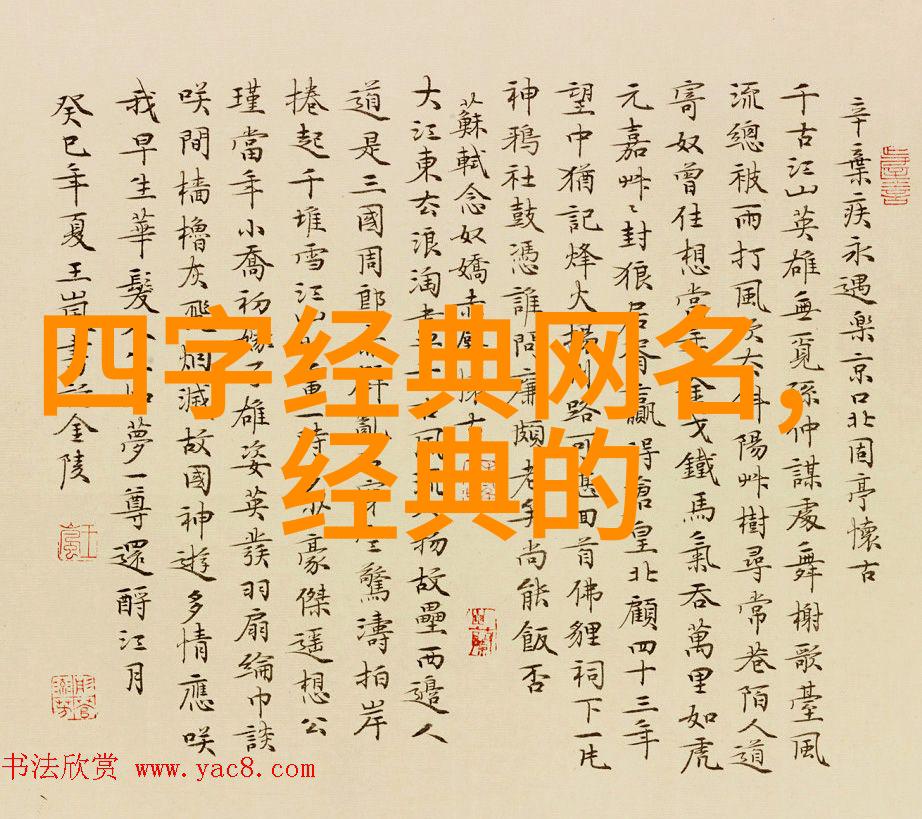 辛棄疾永遇樂京口北固亭懷古
千古江山英雄無覓孫仲謀處舞榭歌臺風
流總被雨打風吹去斜陽艸樹尋常巷陌人道
寄奴曾住想當年金戈鐵馬氣吞萬里如虎
元嘉艸〻封狼居胥贏得倉皇北顧四十三年
望中猶記烽火揚州路可回首佛貍祠下一片
神鴉社鼓憑誰問廉頗老矣尚能飯否
蘇軾念奴嬌赤壁懷古
大江東去浪淘人物故壘西邊人
道是三國周郎亂驚濤拍岸
捲起千堆雪江一時豪傑遥想公
瑾當年小喬初嫁了雄姿英發羽扇綸巾談
咲間檣櫓灰飛烟滅故國神遊多情應咲
我早生華髮夢一尊還酹江月
癸巳年夏王金陵
四字经典网名,
经典的
书法欣赏 www.yac8.com